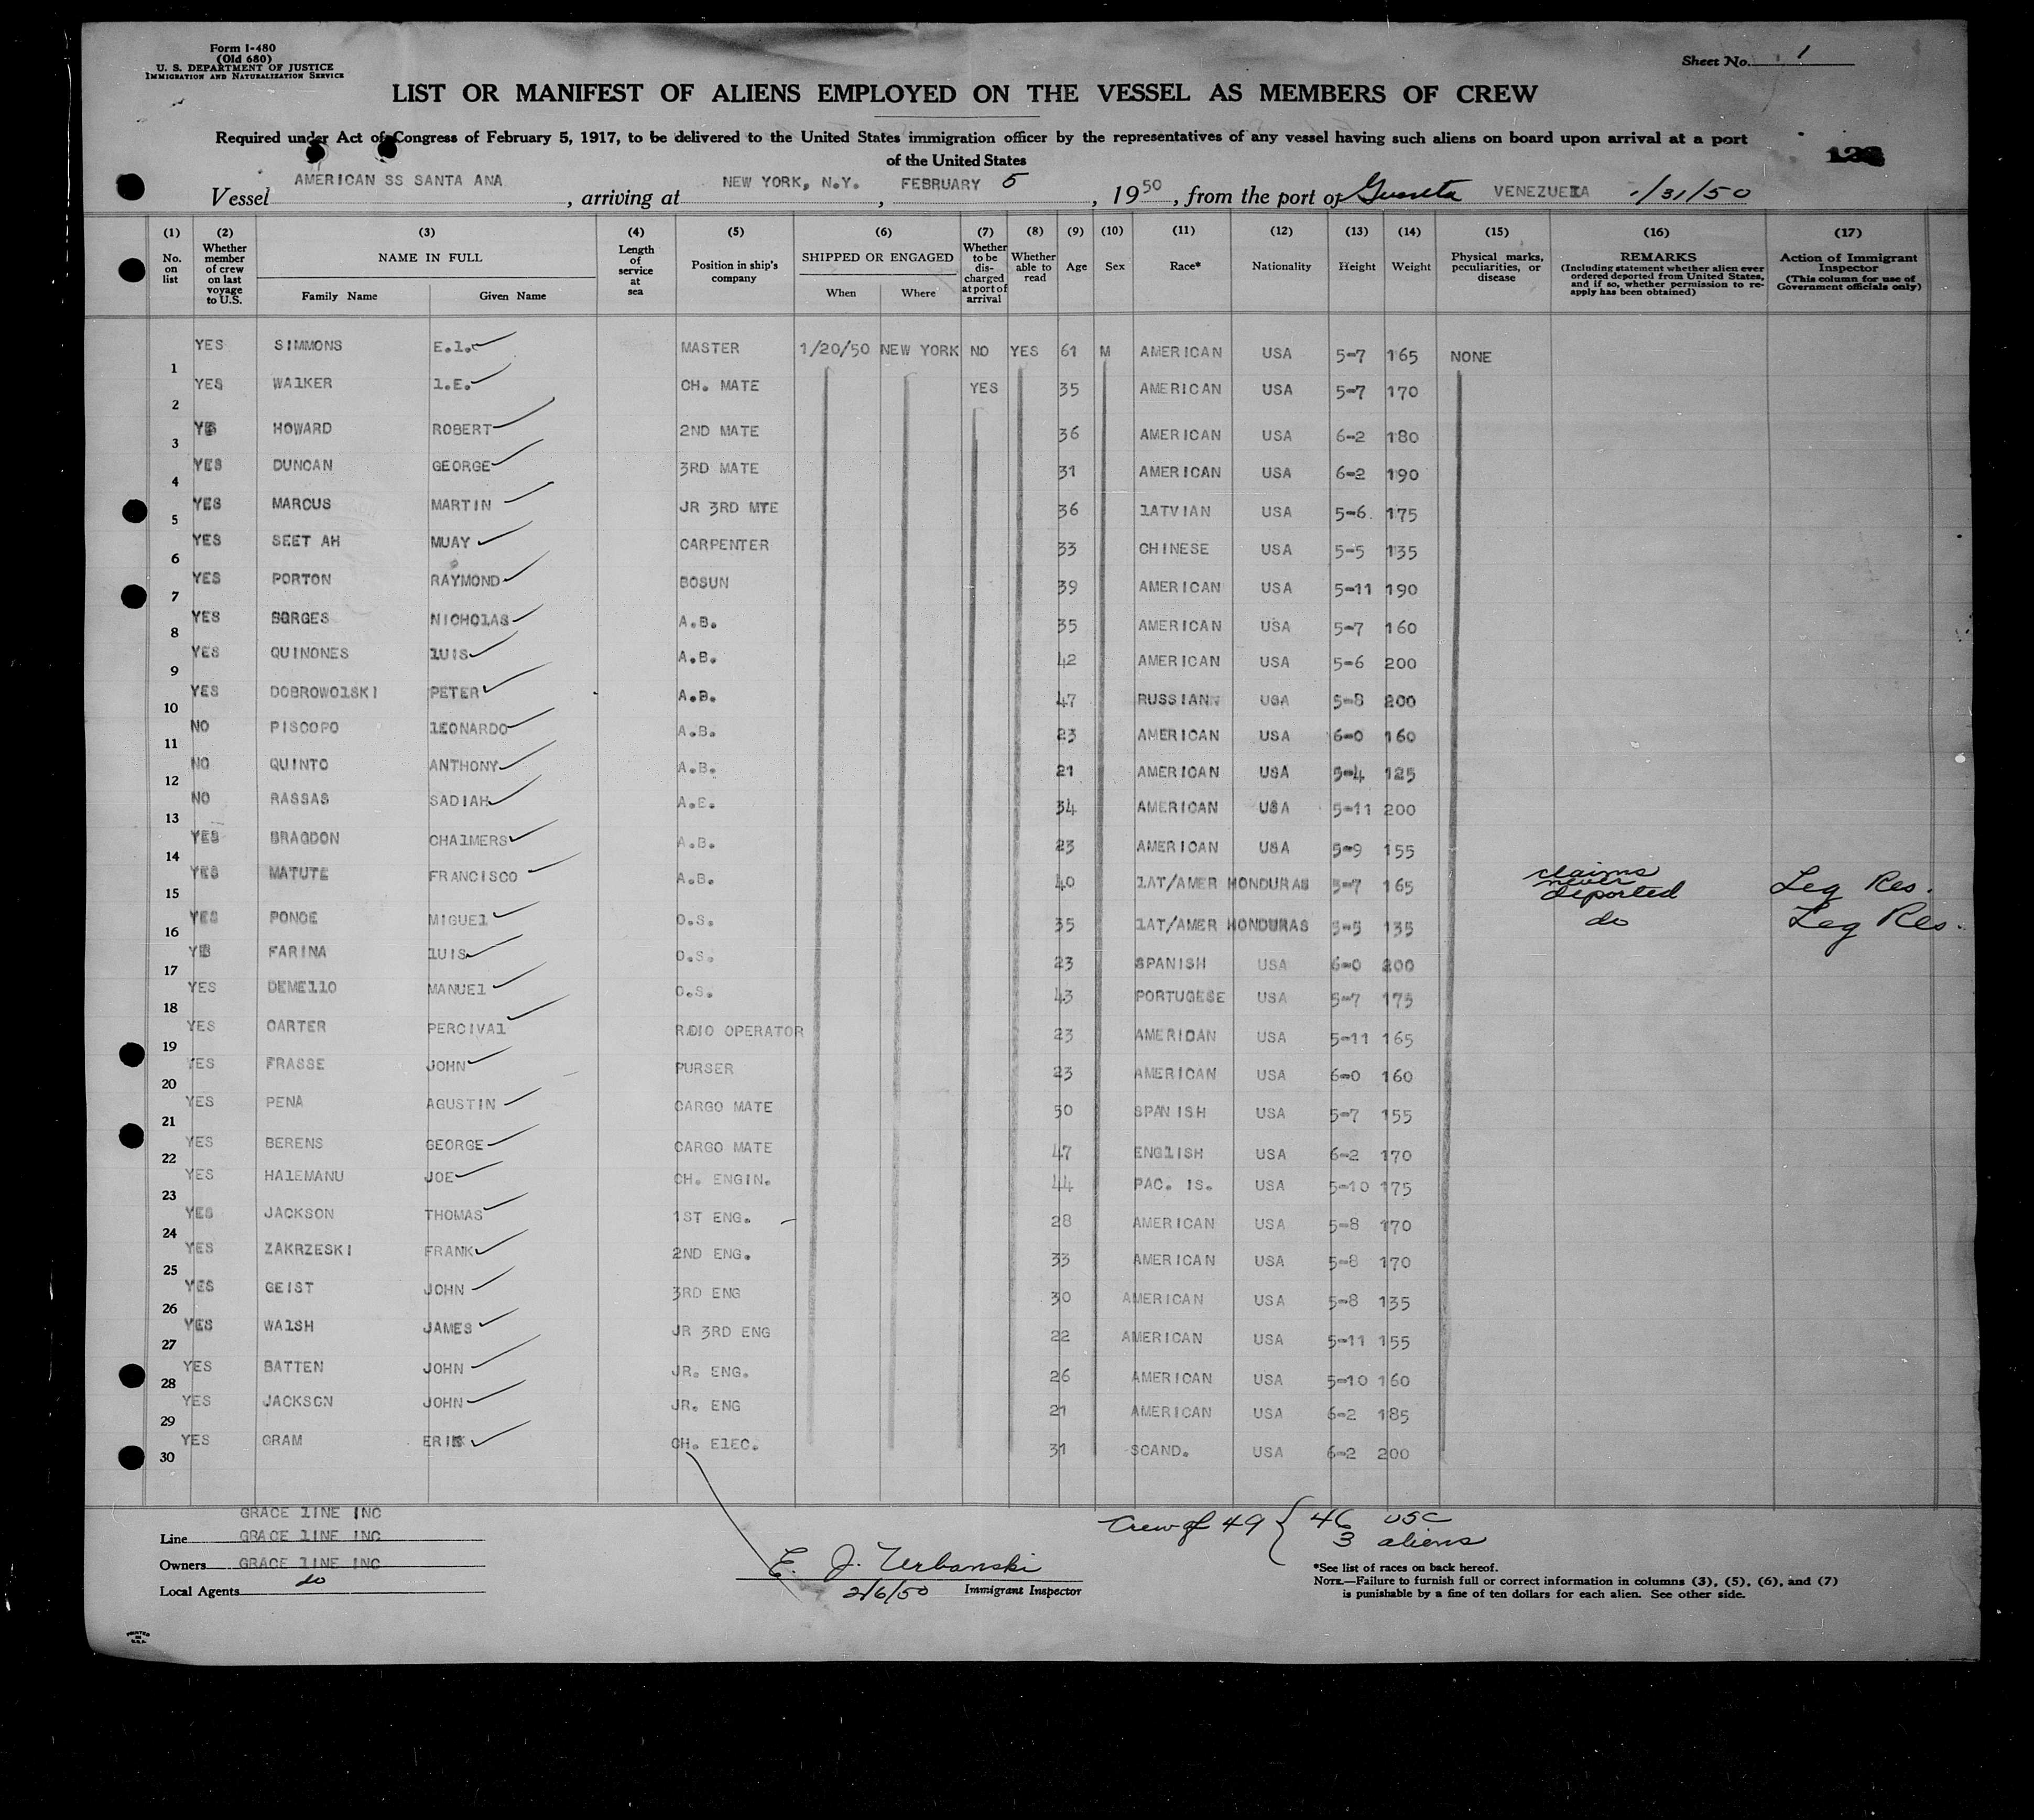 Form I-480
(Old 680)
U. S. DEPARTMENT OF JUSTICE
IMMIGRATION AND NATURALIZATION SERVICE
Sheet No. 1
LIST OR MANIFEST OF ALIENS EMPLOYED ON THE VESSEL AS MEMBERS OF CREW
Required under Act of Congress of February 5, 1917, to be delivered to the United States immigration officer by the representatives of any vessel having such aliens on board upon arrival at a port
of the United States
Vessel AMERICAN SS SANTA ANA, arriving at NEW YORK, N.Y., FEBRUARY 5, 1950, from the port of VENEZUELA 1/31/50
(1) (2) (3) (4) (5) (6) (7) (8) (9) (10) (11) (12) (13) (14) (15) (16) (17)
No. on list
Whether member of crew on last voyage to U.S.
NAME IN FULL
Family Name Given Name
Length of service at sea
Position in ship's company
SHIPPED OR ENGAGED
When Where
Whether to be discharged at port of arrival
Whether able to read
Age
Sex
Race*
Nationality
Height
Weight
Physical marks, peculiarities, or disease
REMARKS
(Including statement whether alien ever ordered deported from United States, and if so, whether permission to reapply has been obtained)
Action of Immigrant Inspector
(This column for use of Government officials only)
1 YES SIMMONS E.l. MASTER 1/20/50 NEW YORK NO YES 61 M AMERICAN USA 5-7 165 NONE
2 YES WAlKER l.E. CH. MATE YES 35 AMERICAN USA 5-7 170
3 YES HOWARD ROBERT 2ND MATE 36 AMERICAN USA 6-2 180
4 YES DUNCAN GEORGE 3RD MATE 31 AMERICAN USA 6-2 190
5 YES MARCUS MARTIN JR 3RD MTE 36 lATVIAN USA 5-6. 175
6 YES SEET AH MUAY CARPENTER 33 CHINESE USA 5-5 135
7 YES PORTON RAYMOND BOSUN 39 AMERICAN USA 5-11 190
8 YES BORGES NICHOlAS A.B. 35 AMERICAN USA 5-7 160
9 YES QUINONES lUIS A.B. 42 AMERICAN USA 5-6 200
10 YES DOBROWOlSKI PETER A.B. 47 RUSSIAN USA 5-8 200
11 NO PISCOPO lEONARDO A.B. 23 AMERICAN USA 6-0 160
12 NO QUINTO ANTHONY A.B. 21 AMERICAN USA 5-4 125
13 NO RASSAS SADIAH A.B. 34 AMERICAN USA 5-11 200
14 YES BRAGDON CHAlMERS A.B. 23 AMERICAN USA 5-9 155
15 YES MATUTE FRANCISCO A.B. 40 lAT/AMER HONDURAS 5-7 165 claims never deported Leg Res.
16 YES PONCE MIGUEl O.S. 35 lAT/AMER HONDURAS 5-5 135 do Leg Res.
17 YES FARINA lUIS O.S. 23 SPANISH USA 6-0 200
18 YES DEMEllO MANUEl O.S. 43 PORTUGESE USA 5-7 175
19 YES CARTER PERCIVAl RDIO OPERATOR 23 AMERICAN USA 5-11 165
20 YES FRASSE JOHN PURSER 23 AMERICAN USA 6-0 160
21 YES PENA AGUSTIN CARGO MATE 50 SPANISH USA 5-7 155
22 YES BERENS GEORGE CARGO MATE 47 ENGlISH USA 6-2 170
23 YES HAlEMANU JOE CH. ENGIN. 44 PAC. IS. USA 5-10 175
24 YES JACKSON THOMAS 1ST ENG. 28 AMERICAN USA 5-8 170
25 YES ZAKRZESKI FRANK 2ND ENG. 33 AMERICAN USA 5-8 170
26 YES GEIST JOHN 3RD ENG 30 AMERICAN USA 5-8 135
27 YES WAlSH JAMES JR 3RD ENG 22 AMERICAN USA 5-11 155
28 YES BATTEN JOHN JR. ENG. 26 AMERICAN USA 5-10 160
29 YES JACKSON JOHN JR. ENG 21 AMERICAN USA 6-2 185
30 YES GRAM ERIK CH. ElEC. 31 SCAND. USA 6-2 200
GRACE lINE INC
Line GRACE lINE INC
Owners GRACE lINE INC
Local Agents do
E. J. Urbanski
2/6/50 Immigrant Inspector
Crew of 49 { 46 USC
3 aliens
*See list of races on back hereof.
NOTE.—Failure to furnish full or correct information in columns (3), (5), (6), and (7)
is punishable by a fine of ten dollars for each alien. See other side.
PRINTED IN U.S.A.